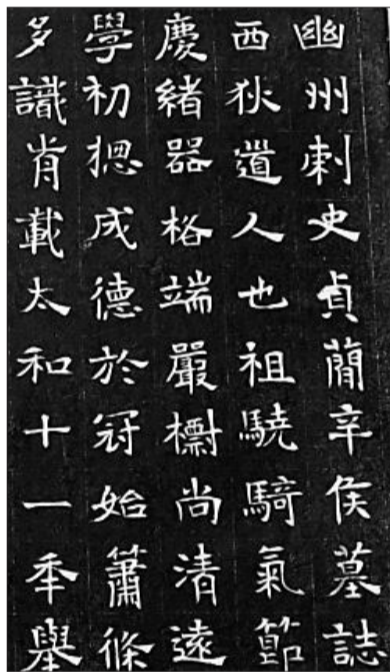 幽州刺史貞簡辛侯墓誌
西狄道人也祖驍騎氣節
慶緒器格端嚴櫥尚清遠
學初摠成德於冠始簫條
多識肯載太和十一年舉